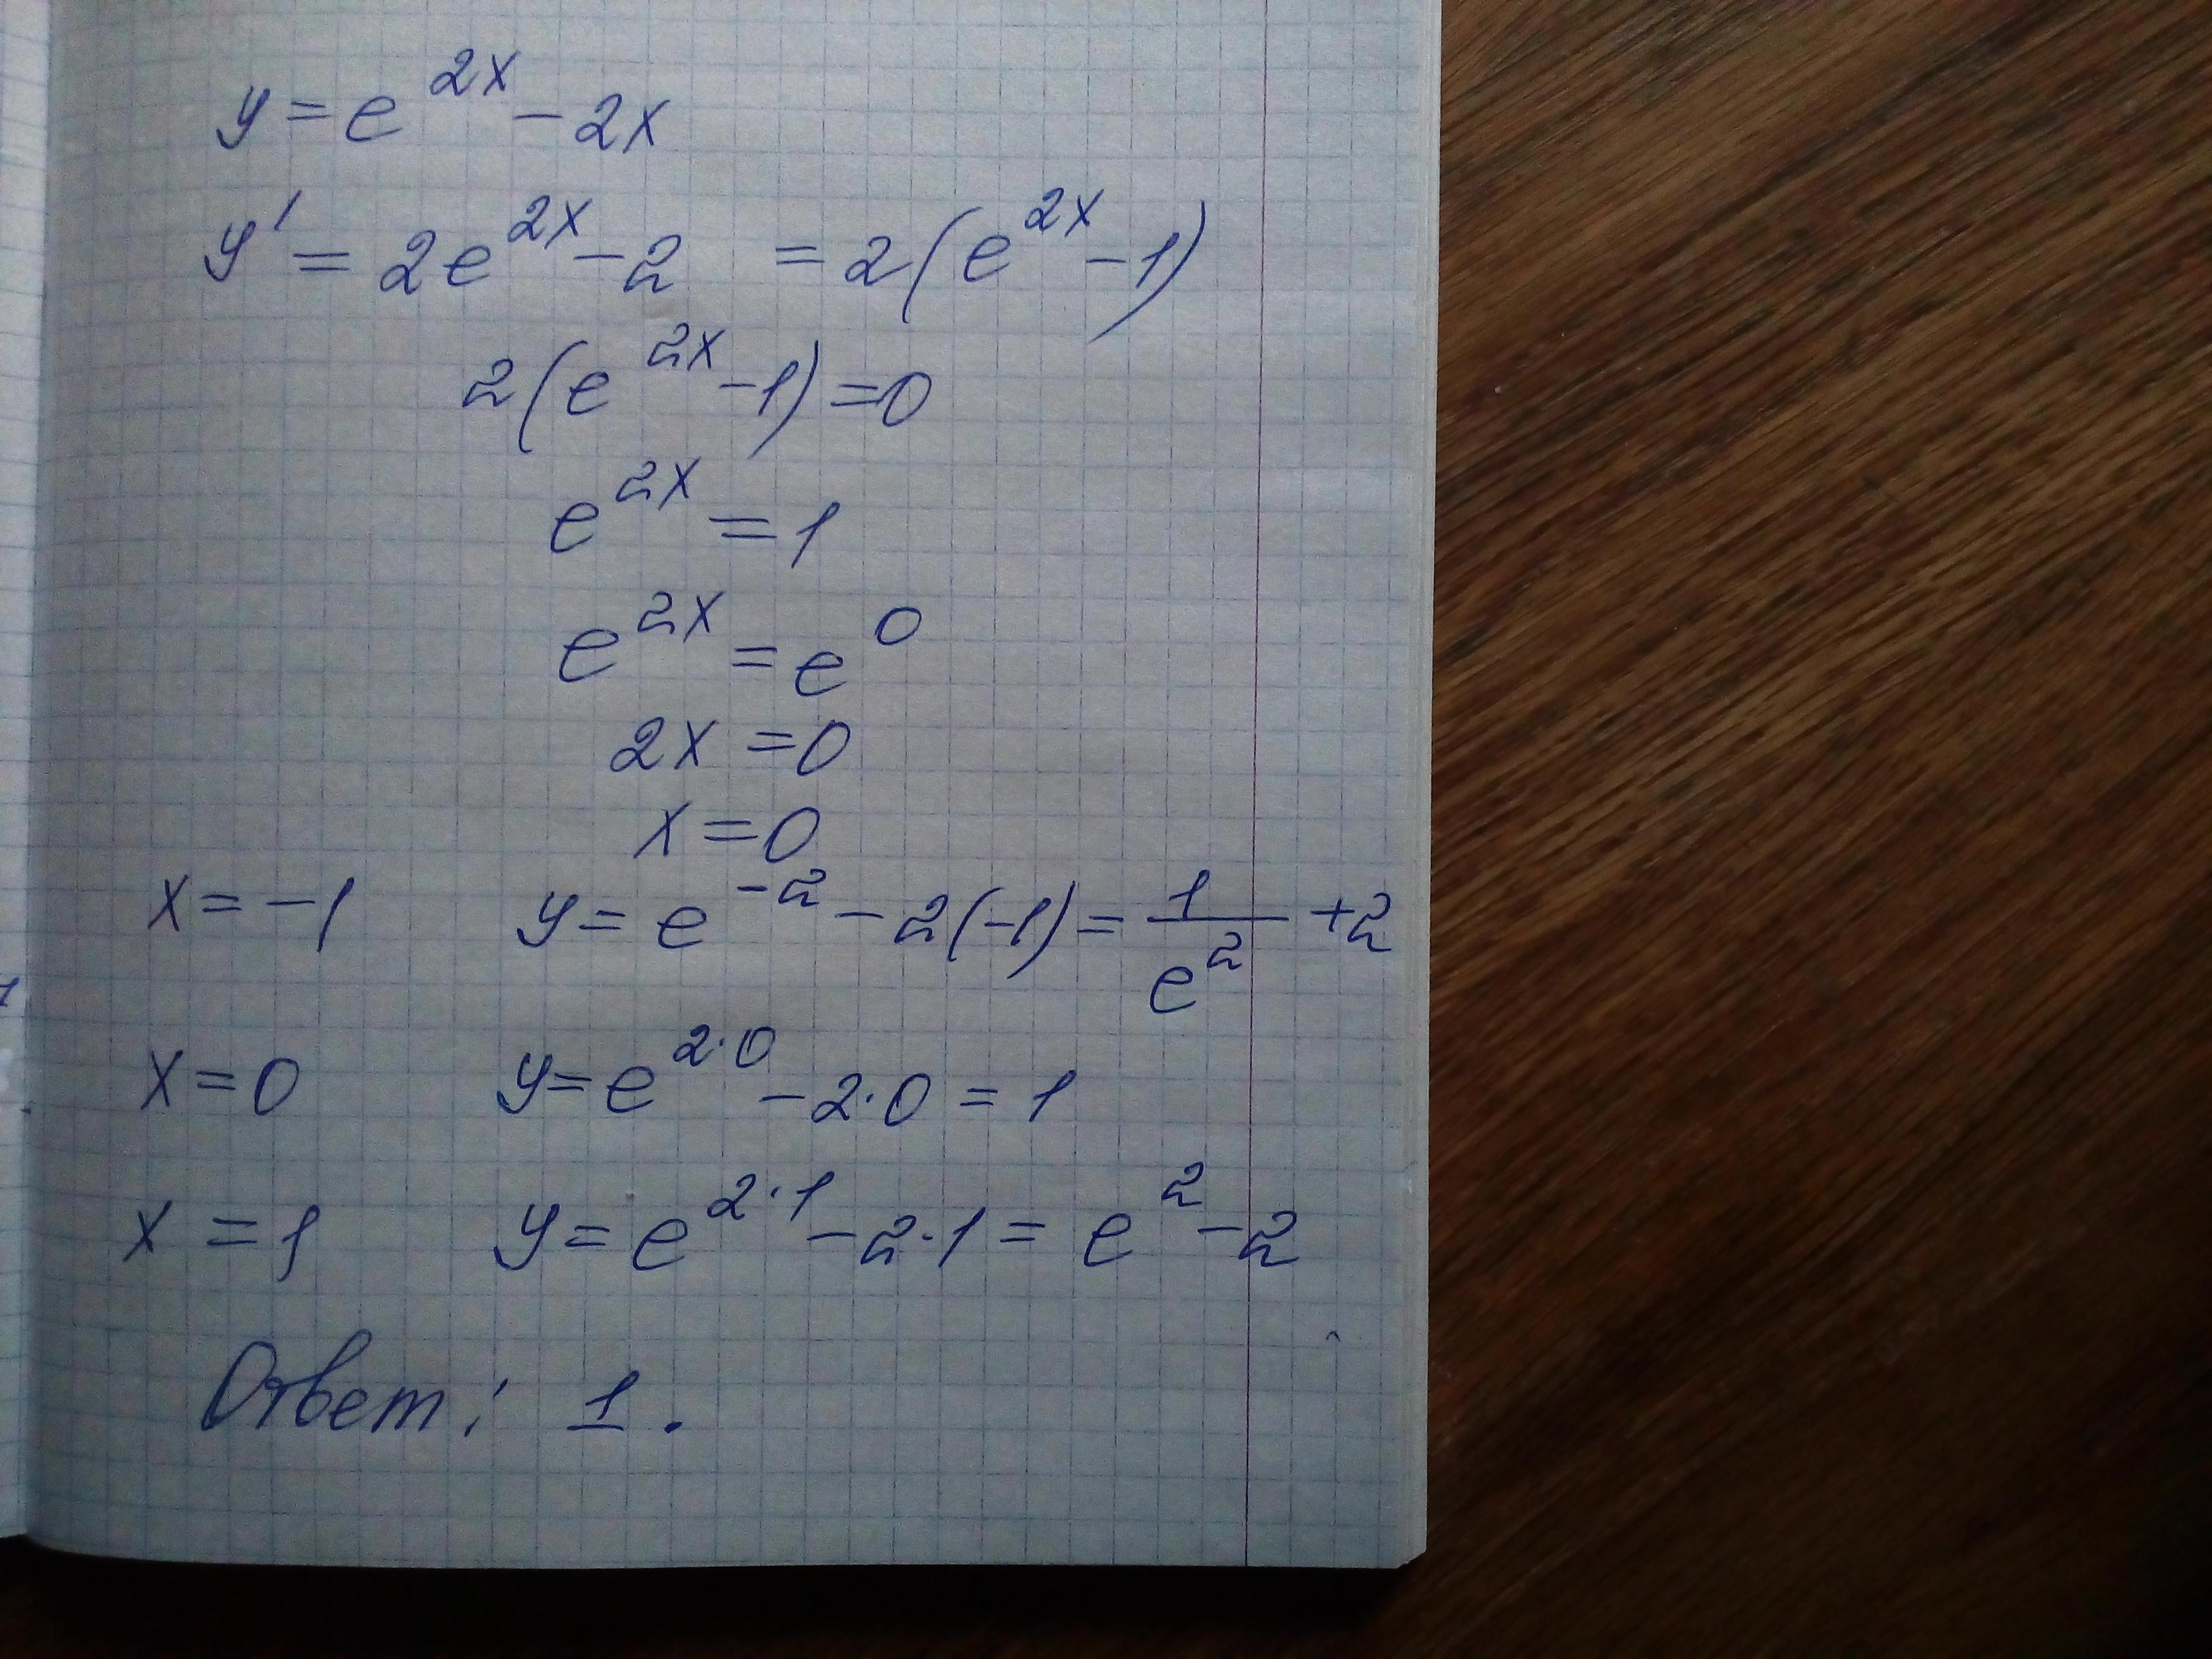 y = e^{2x} - 2x
y' = 2e^{2x} - 2 = 2(e^{2x} - 1)
2(e^{2x} - 1) = 0
e^{2x} = 1
e^{2x} = e^0
2x = 0
x = 0
x = -1 y = e^{-2} - 2(-1) = \frac{1}{e^2} + 2
x = 0 y = e^{2·0} - 2·0 = 1
x = 1 y = e^{2·1} - 2·1 = e^2 - 2
Ответ: 1.